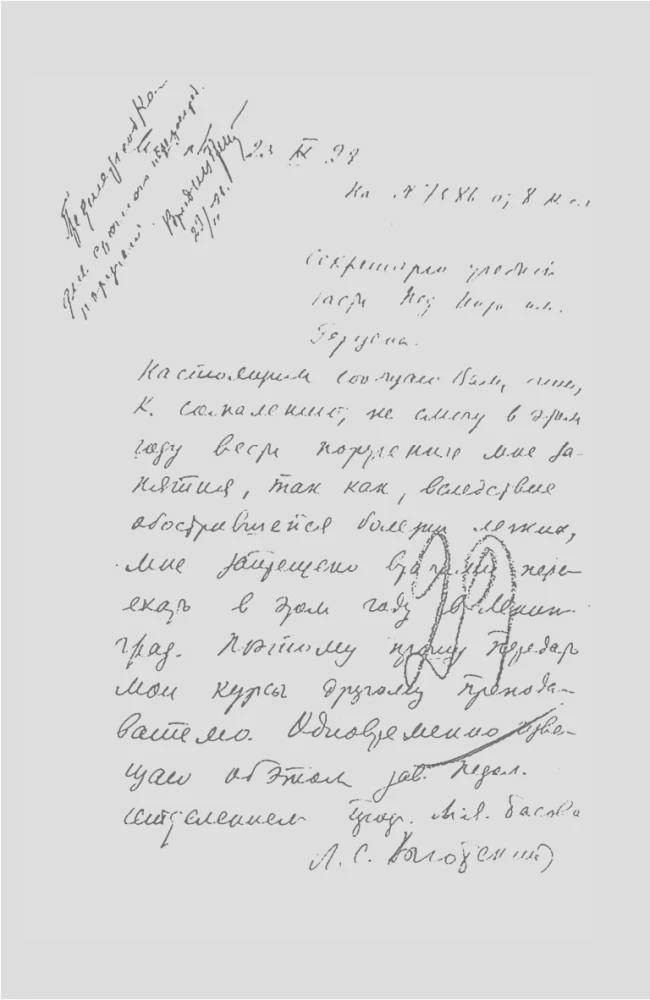 23 XI
На №
Секретарю учебной
части Пед Инст им.
Герцена.
Настоящим сообщаю Вам, что,
к сожалению, не смогу в этом
году вести порученные мне за-
нятия, так как, вследствие
обострившейся болезни легких,
мне запрещено врачами пере-
ехать в этом году в Ленин-
град. Поэтому прошу передать
мои курсы другому препода-
вателю. Одновременно изве-
щаю об этом зав. педол.
отделением проф. М.Я. Басова
Л. С. Выготский